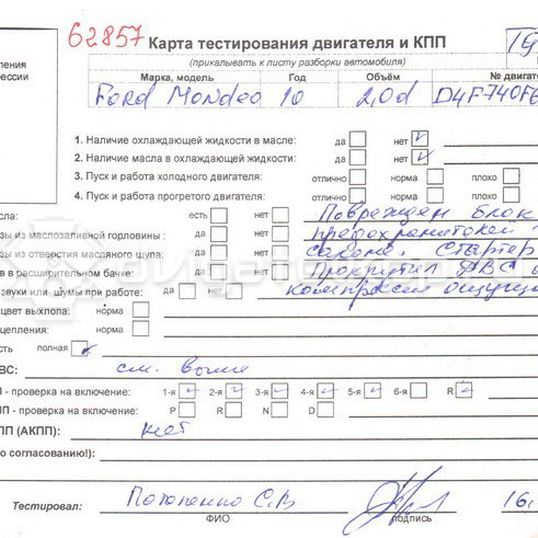 62857 Карта тестирования двигателя и КПП
(прикалывать к листу разборки автомобиля)
Марка, модель Год Объём № двигат
Ford Mondeo 10 2,0d D4F-740F6
1. Наличие охлаждающей жидкости в масле: да нет
2. Наличие масла в охлаждающей жидкости: да нет
3. Пуск и работа холодного двигателя: отлично норма плохо
4. Пуск и работа прогретого двигателя: отлично норма плохо
сла: есть нет Поврежден блок
зы из маслозаливной горловины: да нет предохранителей
зы из отверстия масляного щупа: да нет салоне. Стартер
в в расширительном бачке: да нет прокрутил ДВС
звуки или шумы при работе: да нет компрессия ощуща
цвет выхлопа: норма
цепления: норма
сть полная
ВС: см. выше
П - проверка на включение: 1-я 2-я 3-я 4-я 5-я 6-я R
ПП - проверка на включение: P R N D
ПП (АКПП): нет
о согласованию!):
Тестировал: Потопенко С.В. 16.
ФИО подпись